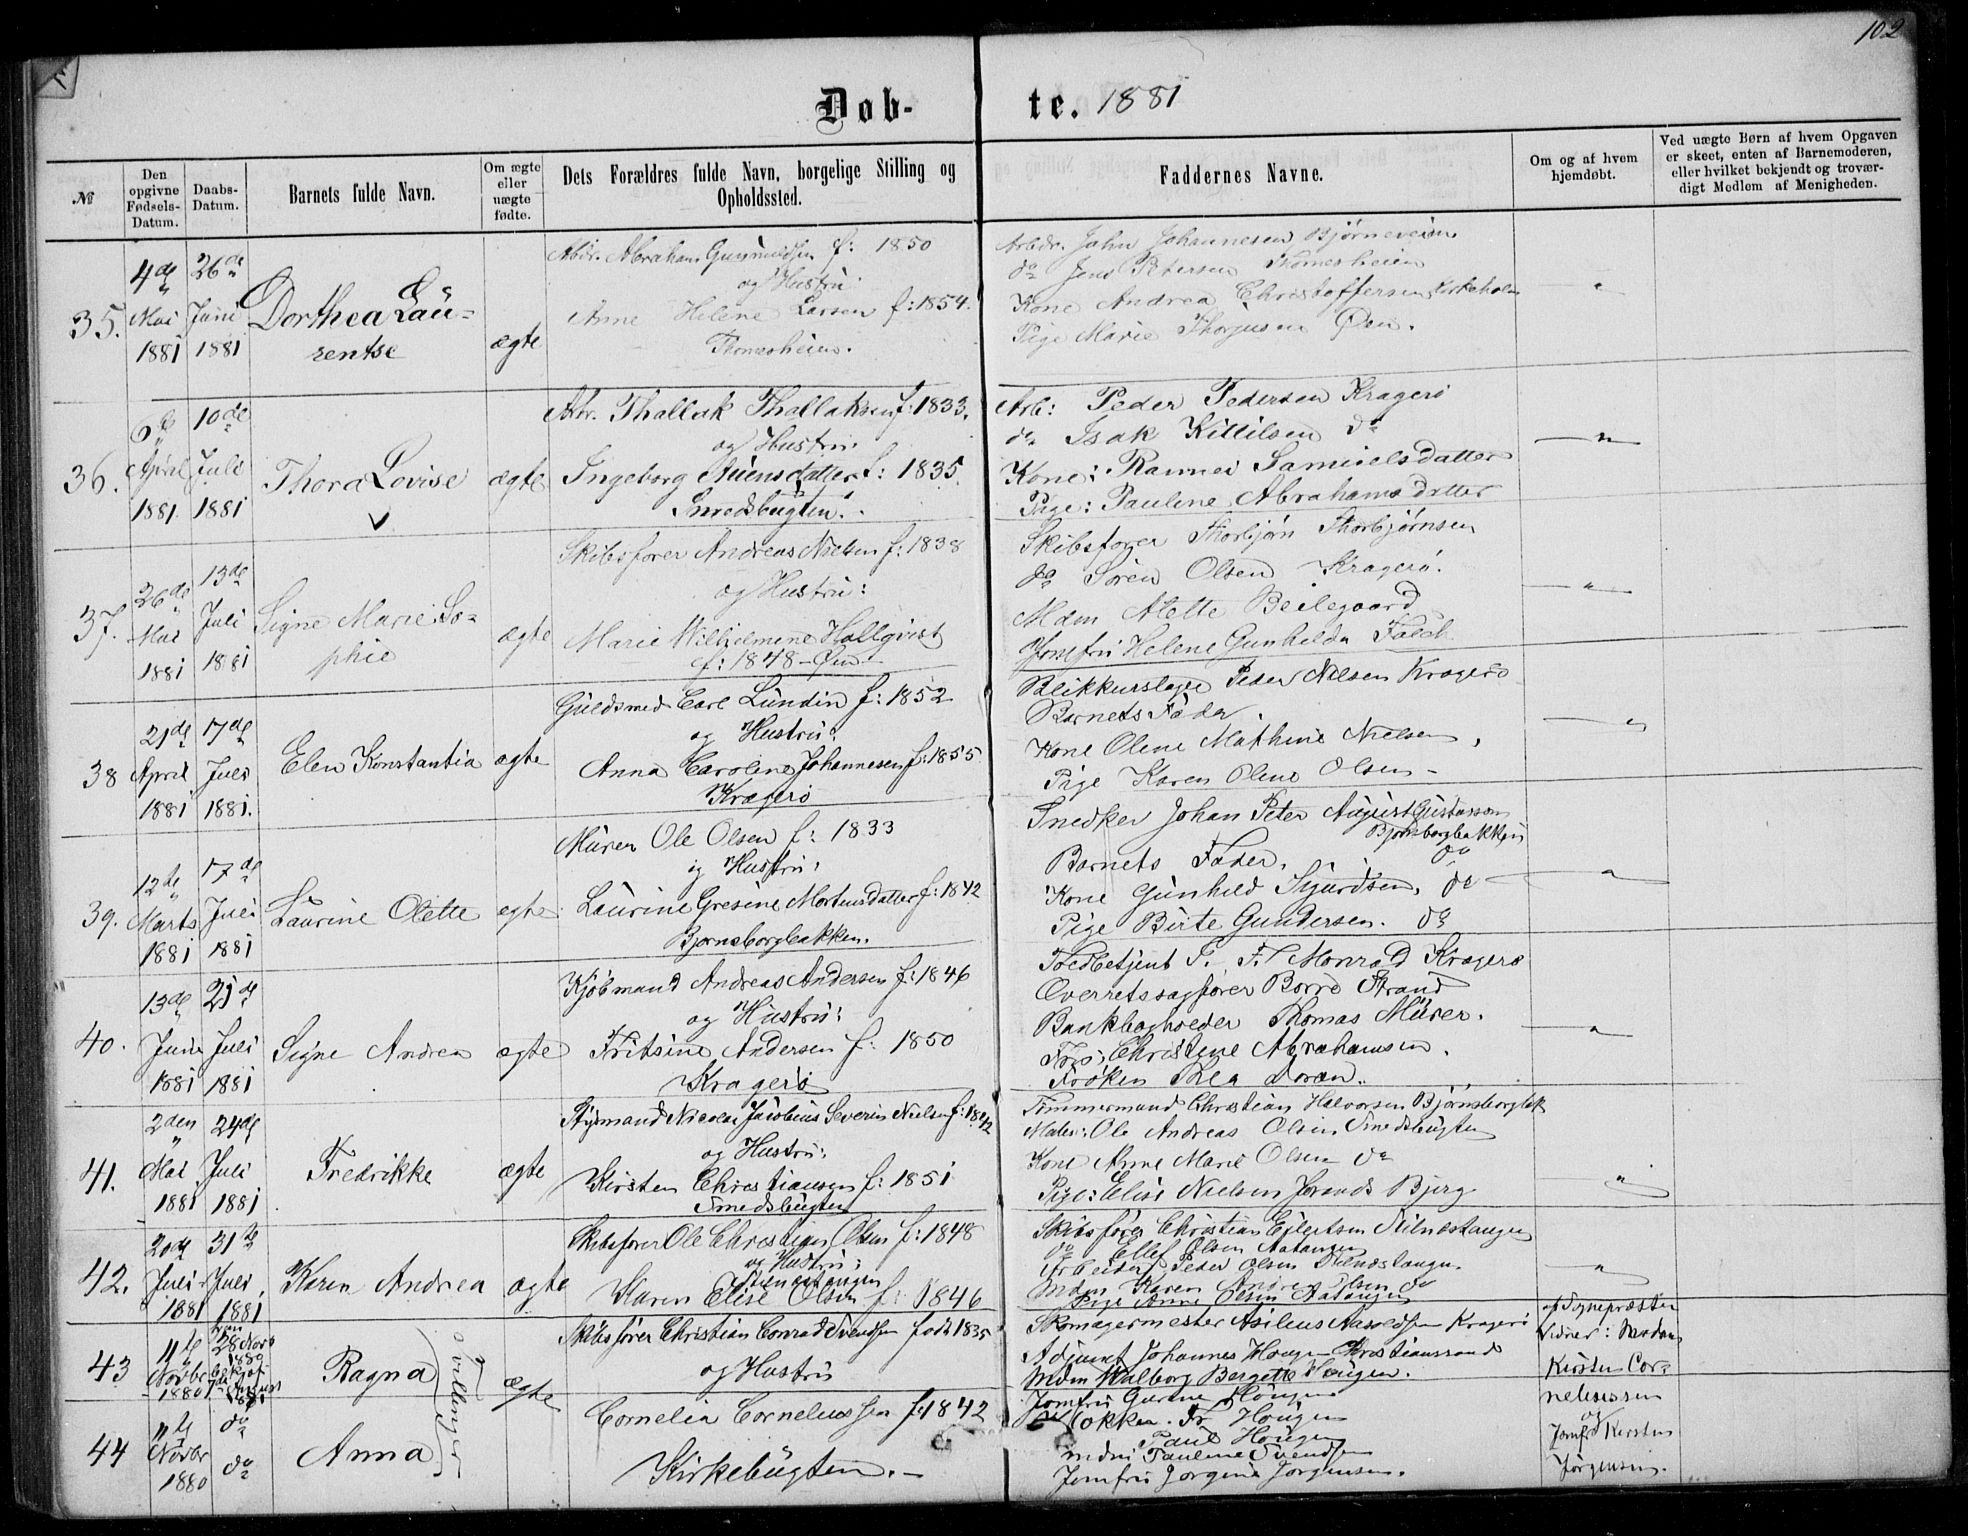 102
Døb-
te. 1881
№
Den opgivne Fødsels-Datum.
Daabs-Datum.
Barnets fulde Navn.
Om ægte eller uægte fødte.
Dets Forældres fulde Navn, borgelige Stilling og Opholdssted.
Faddernes Navne.
Om og af hvem hjemdøbt.
Ved uægte Børn af hvem Opgaven er skeet, enten af Barnemoderen, eller hvilket bekjendt og troværdigt Medlem af Menigheden.
35.
4de Mai 1881
26de Juni 1881
Dorthea Lau-
rentse
ægte
Arbdr. Abraham Gunnuldsen f: 1850
og Hustru
Anne Helene Larsen f: 1854.
Thomesheien.
Arbdr. John Johannesen Bjørneveien
do Jens Petersen Thomesheien
Kone Andrea Christoffersen Kirkeholm
Pige Marie Thorjusen Øen.
"
36.
6te April 1881
10de Juli 1881
Thora Lovise
ægte
Arbr. Thallak Thallaksen f: 1833.
og Hustru
Ingeborg datter f: 1835.
Smedsbugten.
Arb: Peder Pedersen Kragerö
do Isak Kittilsen do
Kone: Ravnei Samuelsdatter
Pige: Pauline Abrahamsdatter
"
37.
26de Mai 1881
13de Juli 1881
Signe Marie So-
phie
ægte
Skibsfører Andreas Nielsen f: 1838
og Hustru:
Marie Wilhelmine Hallqvist
f: 1848 - Øen
Skibsfører Thorbjørn Thorbjørnsen
do Sören Olsen Kragerö.
Mdm Alette Beilegaard
Jomfru Helene Gunhilda Falch
"
38
21de April 1881
17de Juli 1881.
Elen Konstantia
ægte
Guldsmed Carl Lundin f: 1852
og Hustru:
Anna Caroline Johannesen f: 1855
Kragerö
Blikkenslager Peder Nielsen Kragerö
Barnets Fader.
Kone Oline Mathine Nielsen,
Pige Karen Oline Olsen -
"
39.
12te Marts 1881
17de Juli 1881
Laurine Olette
ægte
Murer Ole Olsen f: 1833
og Hustru:
Laurine Gresine Mortensdatter f: 1842
Bjornsborgbakken.
Snedker Johan Peter August Gustavson
Bjornsborgbakken
Barnets Fader. do
Kone Gunhild Sjurdsen, do
Pige Birte Gundersen. do
"
40.
13de Juni 1881
21de Juli 1881
Signe Andrea
ægte
Kjöbmand Andreas Andersen f: 1846
og Hustru:
Fritsine Andersen f: 1850
Kragerö
Toldbetjent P. F. Monrad Kragerö
Overretssagfører Borre Strand
Bankbogholder Thomas Murer.
Fru: Christine Abrahamsen.
Frøken Thea Doran.
"
41.
2den Mai 1881
24de Juli 1881
Fredrikke
ægte
Styrmand Nicolai Jacobius Severin Nielsen f: 1842
og Hustru:
Kirsten Christiansen f: 1851
Smedsbugten
Timmermand Christian Halvorsen Bjørnsborgbk
Mater: Ole Andreas Olsen Smedsbugten
Kone Anne Marie Olsen do
Pige: Elise Nielsen Bjerg
"
42.
20de Juli 1881
31te Juli 1881
Karen Andrea
ægte
Skibsfører Ole Christian Olsen f: 1848
og Hustru:
Karen Elise Olsen f: 1846
Skibsfører Christian Ejlertsen
do Ellef Olsen Aatangen
Arbeider Peder Olsen
Mdm Karen Andrea Olsen do
Pige Anne Olsen Aatangen
"
43
11te Novbr 1880
28 Novb 1880
Ragna
tvillinger
ægte
Skibsfører Christian Conrad Svendsen född 1835
og Hustru
Cornelia Corneliussen f. 1842
Kirkebugten. -
Skomagermester Asileus Aasoldsen Kragerö
Adjunct Johannes Hougen Christianssand
Mdm Walborg Bergette Hougen.
Jomfru Hougen
Klokker. Fr Hougen
Paul Hougen
mdm Pauline Svendsen
Jomfru Jorgine Jorgensen.
af Sognepræsten
Vidner: Madam
Kirsten Cor-
neliussen
og
Jomf Kirsten
Jörgensen.
44
11te Novbr 1880
do do
Anna